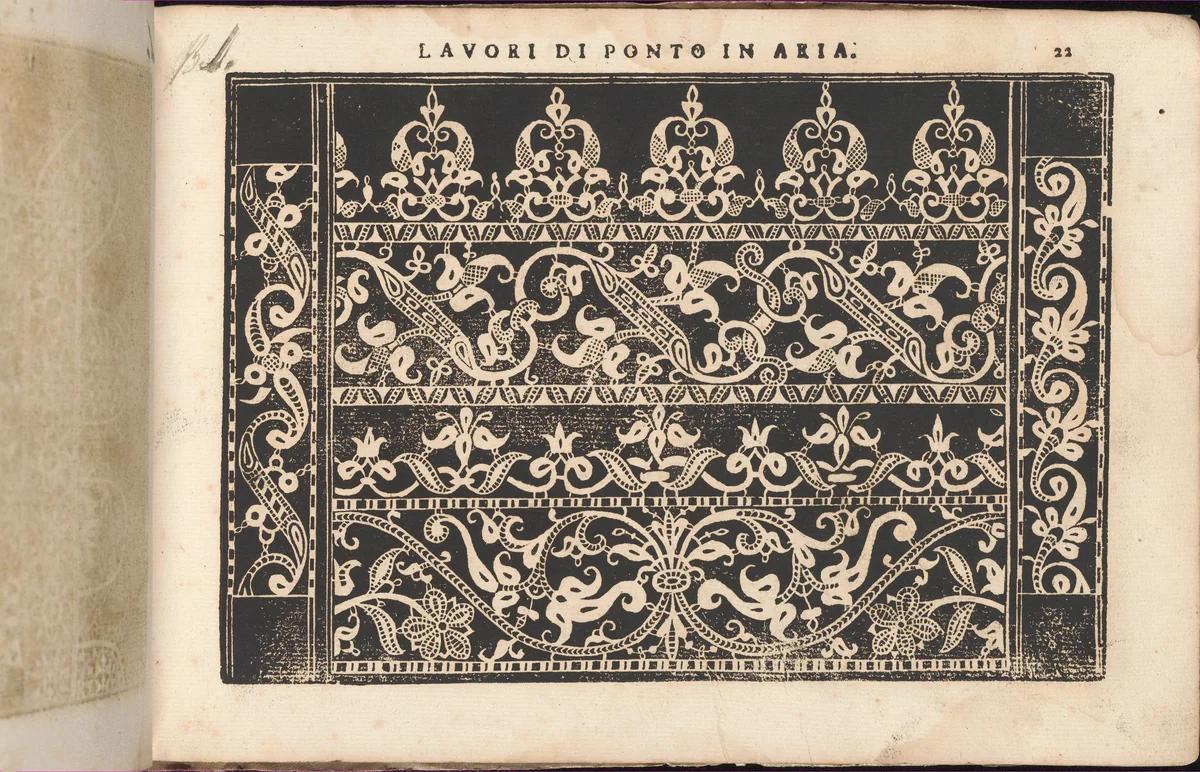 LAVORI DI PONTO IN ARIA.
22